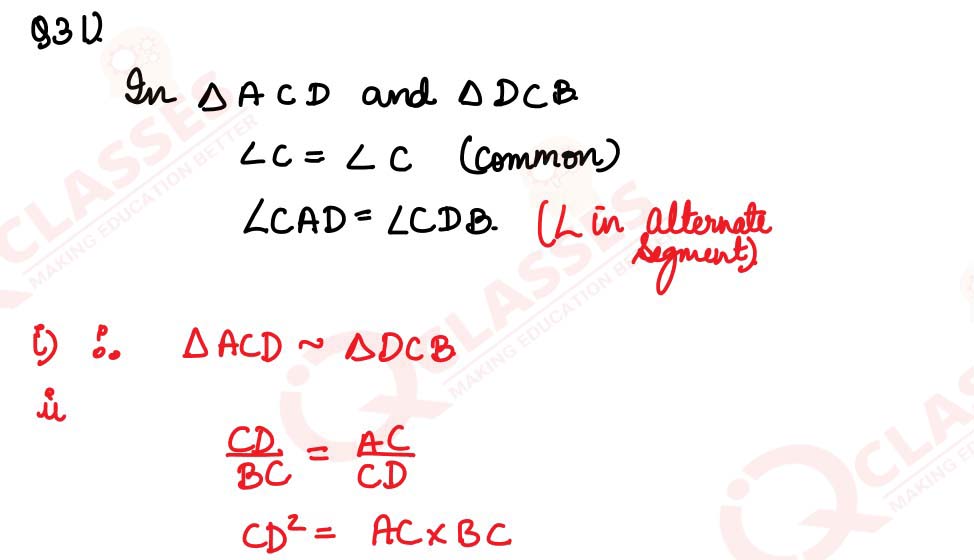 Q3 1).
In △ ACD and △ DCB
∠C = ∠C (Common)
∠CAD = ∠CDB. (∠ in alternate
segment)
i) ∴ △ ACD ~ △ DCB
ii
CD/BC = AC/CD
CD² = AC x BC
CLASSES
MAKING EDUCATION BETTER
iQ CLASSES
MAKING EDUCATION BETTER
CLASSES
MAKING EDUCATION